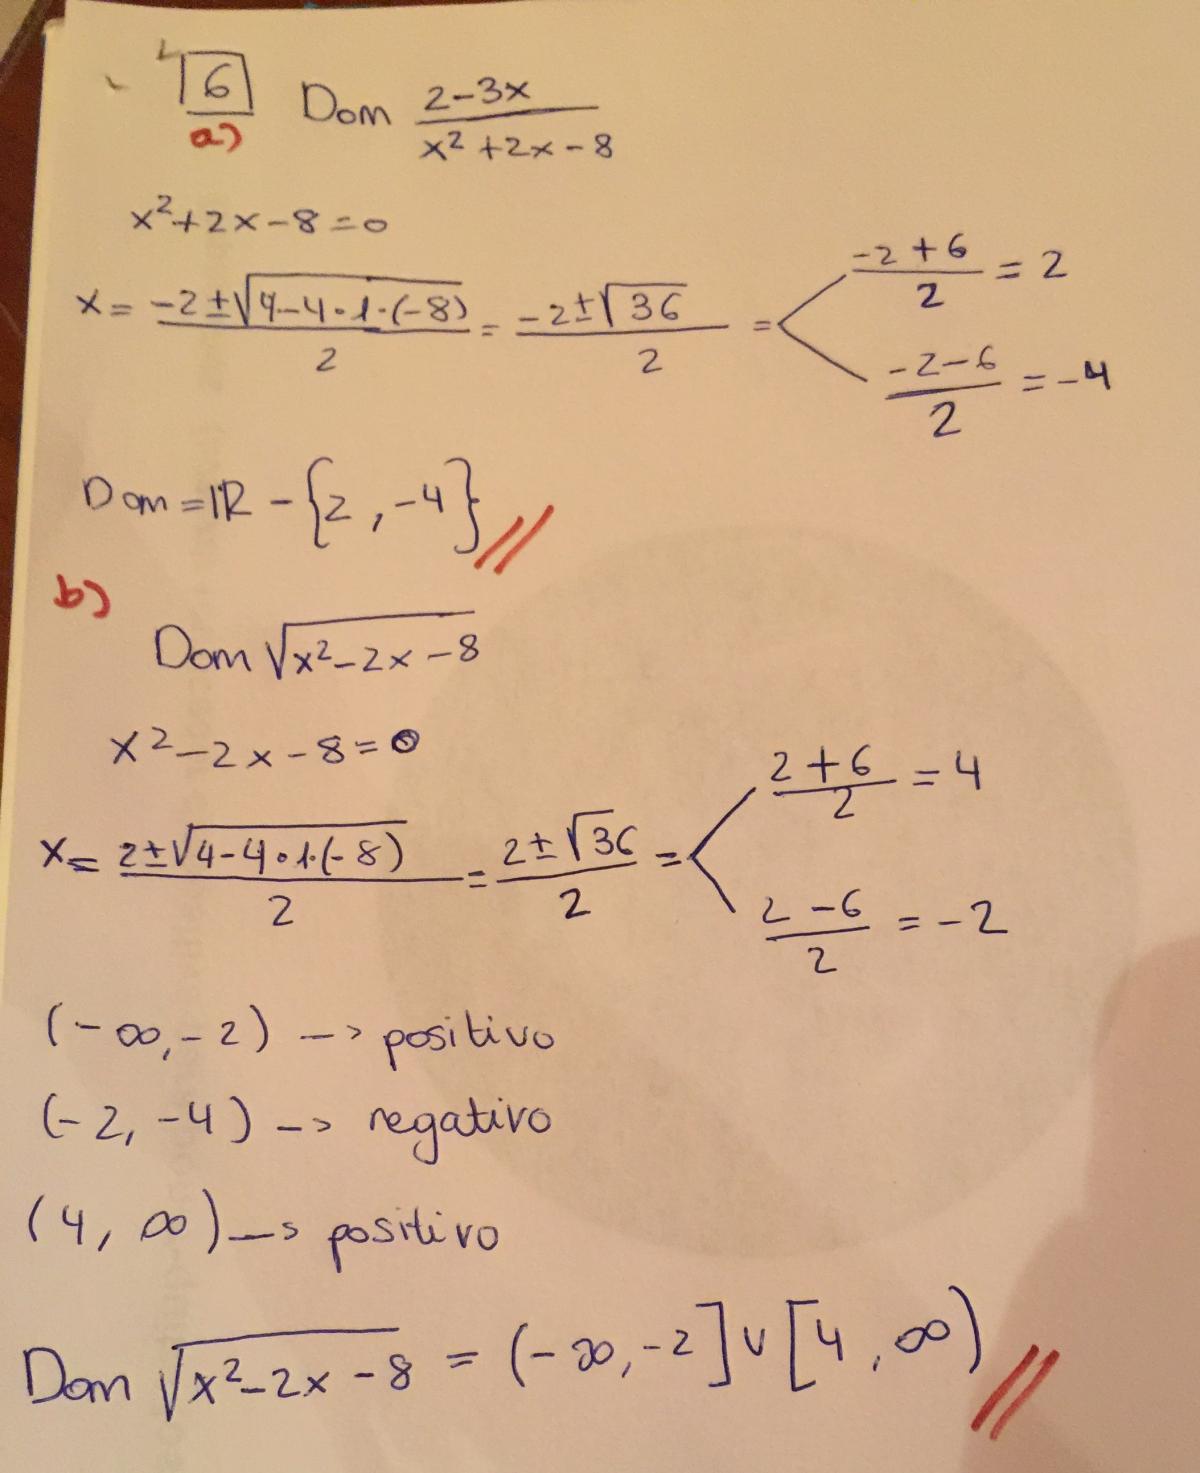 6 Dom (2-3x)/(x²+2x-8)
a)
x²+2x-8=0
x = (-2±√(4-4·1·(-8)))/2 = (-2±√36)/2 = < (-2+6)/2 = 2
(-2-6)/2 = -4
Dom = ℝ - {2, -4} //
b)
Dom √(x²-2x-8)
x²-2x-8=0
x = (2±√(4-4·1·(-8)))/2 = (2±√36)/2 = < (2+6)/2 = 4
(2-6)/2 = -2
(-∞, -2) -> positivo
(-2, -4) -> negativo
(4, ∞) -> positivo
Dom √(x²-2x-8) = (-∞, -2] ∪ [4, ∞) //